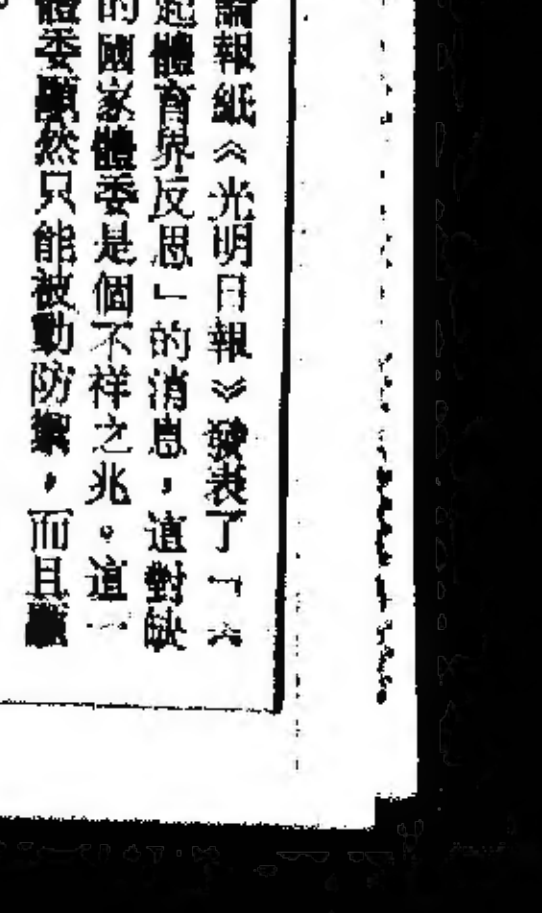 論報紙《光明日報》發表了「六
起體育界反思」的消息,這對缺
的國家體委是個不祥之兆。這一
體委顯然只能被動防禦,而且顯